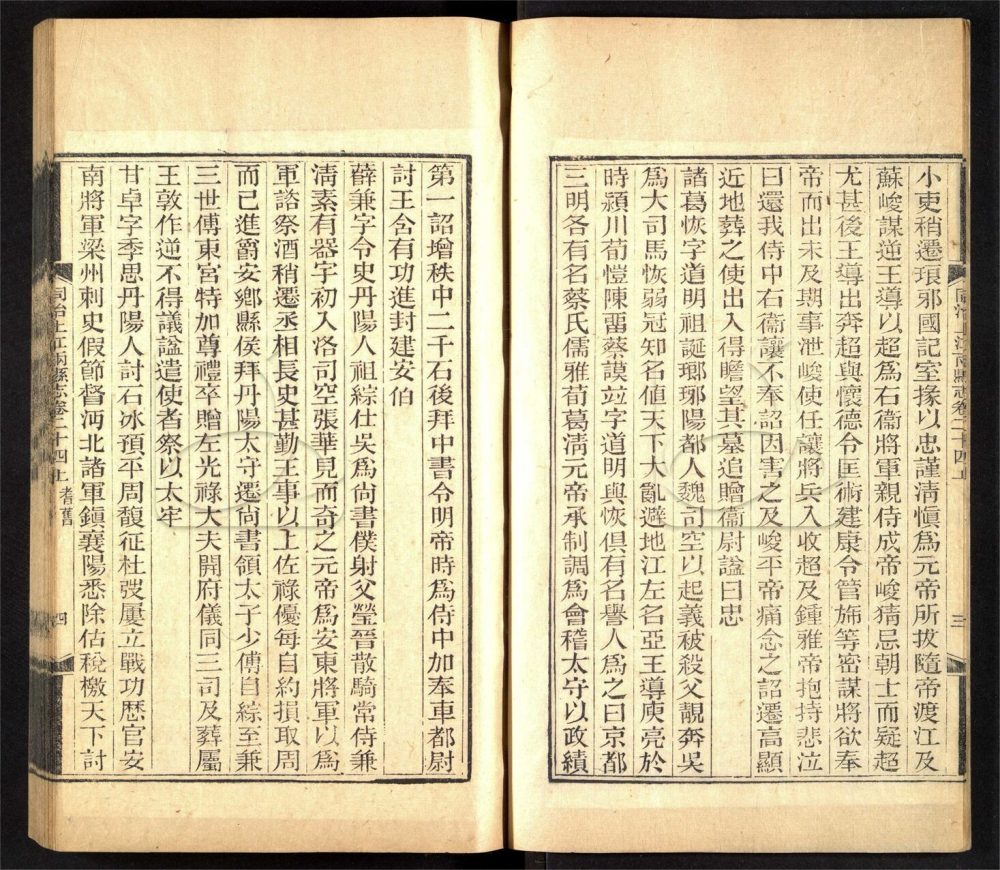 同治上江兩縣志卷二十四上
三
小吏稍遷琅邪國記室掾以忠謹淸愼爲元帝所拔隨帝渡江及
蘇峻謀逆王導以超爲右衞將軍親侍成帝峻猜忌朝士而疑超
尤甚後王導出奔超與懷德令匡術建康令管旆等密謀將欲奉
帝而出未及期事泄峻使任讓將兵入收超及鍾雅帝抱持悲泣
曰還我侍中右衞讓不奉詔因害之及峻平帝痛念之詔遷高顯
近地葬之使出入得瞻望其墓追贈衞尉諡曰忠
諸葛恢字道明祖誕瑯琊陽都人魏司空以起義被殺父靚奔吳
爲大司馬恢弱冠知名値天下大亂避地江左名亞王導庾亮於
時潁川荀愷陳畱蔡謨竝字道明與恢俱有名譽人爲之曰京都
三明各有名蔡氏儒雅荀葛淸元帝承制調爲會稽太守以政績
第一詔增秩中二千石後拜中書令明帝時爲侍中加奉車都尉
討王含有功進封建安伯
薛兼字令史丹陽人祖綜仕吳爲尙書僕射父瑩晉散騎常侍兼
淸素有器宇初入洛司空張華見而奇之元帝爲安東將軍以爲
軍諮祭酒稍遷丞相長史甚勤王事以上佐祿優每自約損取周
而已進爵安鄕縣侯拜丹陽太守遷尙書領太子少傅自綜至兼
三世傅東宮特加尊禮卒贈左光祿大夫開府儀同三司及葬屬
王敦作逆不得議諡遣使者祭以太牢
甘卓字季思丹陽人討石冰預平周馥征杜弢屢立戰功歷官安
南將軍梁州刺史假節督沔北諸軍鎭襄陽悉除估稅檄天下討
同治上江兩縣志卷二十四上
耆舊
四